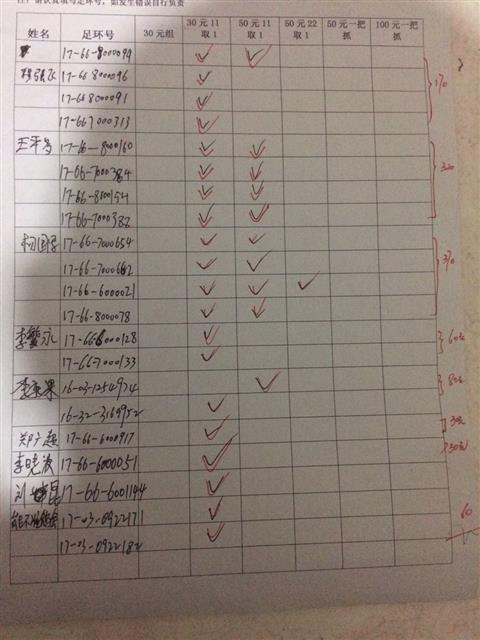 注：请认真填写足环号，如发生错误自行负责
姓名 足环号 30元组 30元11取1 50元11取1 50元22取1 50元一把抓 100元一把抓
17-66-8000094 ✓ ✓
17-66 8000096 ✓
17-66 8000091 ✓
17-66 7000313 ✓
170
17-66-8000160 ✓ ✓
17-66-7000384 ✓ ✓
17-66-8000154 ✓ ✓
17-66-7000382 ✓ ✓
320
杨国 17-66-7000654 ✓ ✓
17-66-7000662 ✓ ✓
17-66-6000021 ✓ ✓ ✓
17-66-8000078 ✓ ✓
370
17-66-6000128 ✓
17-66-7000133 ✓
60元
16-03-1254924 ✓
16-32-3169952 ✓
80元
郑广超 17-66-6000917 ✓
30元
李晓波 17-66-6000051 ✓
30元
刘 17-66-6001144 ✓
17-03-0922171 ✓
17-03-0922182 ✓
60